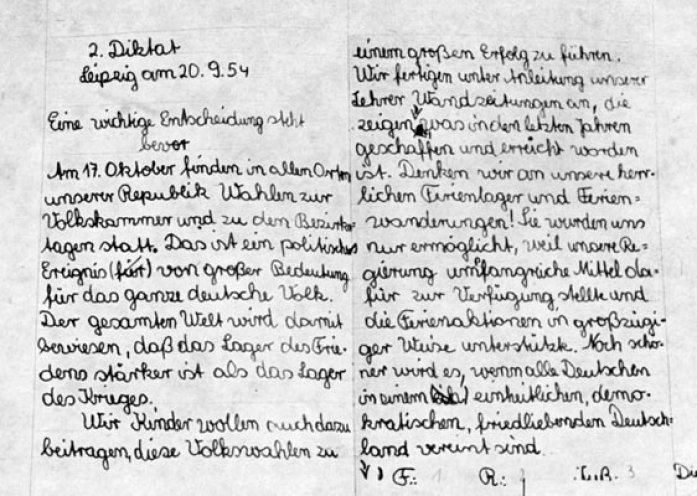 2. Diktat
Leipzig am 20. 9. 54
Eine wichtige Entscheidung steht
bevor
Am 17. Oktober finden in allen Orten
unserer Republik Wahlen zur
Volkskammer und zu den Bezirks-
tagen statt. Das ist ein politisches
Ereignis (für) von großer Bedeutung
für das ganze deutsche Volk.
Der gesamten Welt wird damit
bewiesen, daß das Lager des Frie-
dens stärker ist als das Lager
des Krieges.
Wir Kinder wollen auch dazu
beitragen, diese Volkswahlen zu
einem großen Erfolg zu führen.
Wir fertigen unter Anleitung unserer
Lehrer Wandzeitungen an, die
zeigen, was in den letzten Jahren
geschaffen und erreicht worden
ist. Denken wir an unsere herr-
lichen Ferienlager und Ferien=
wanderungen! Sie wurden uns
nur ermöglicht, weil unsere Re=
gierung umfangreiche Mittel da-
für zur Verfügung stellte und
die Ferienaktionen in großzügi-
ger Weise unterstützte. Noch schö-
ner wird es, wenn alle Deutschen
in einem einheitlichen, demo-
kratischen, friedliebenden Deutsch-
land vereint sind.
F.: 1 R.: I.R. 3